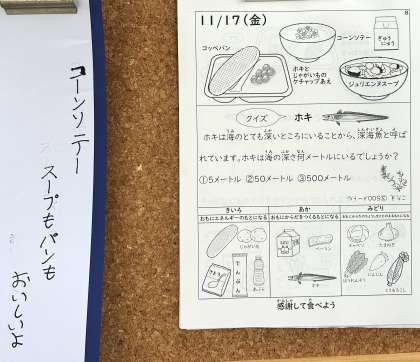 コーンソテー
スープもパンも
おいしいよ
11/17(金)
コッペパン
コーンソテー
ぎゅう
にゅう
ホキと
じゃがいもの
ケチャップあえ
ジュリエンヌスープ
クイズ ホキ
ホキは海のとても深いところにいることから、深海魚と呼ば
れています。ホキは海の深さ何メートルにいるでしょうか?
①5メートル ②50メートル ③500メートル
きいろ あか みどり
おもにエネルギーのもとになる おもにからだをつくるもとになる
じゃがいも
さとう
でんぷん
あぶら
ベーコン
ホキ
キャベツ
たまねぎ
ほうれんそう
にんじん
とうもろこし
感謝して食べよう